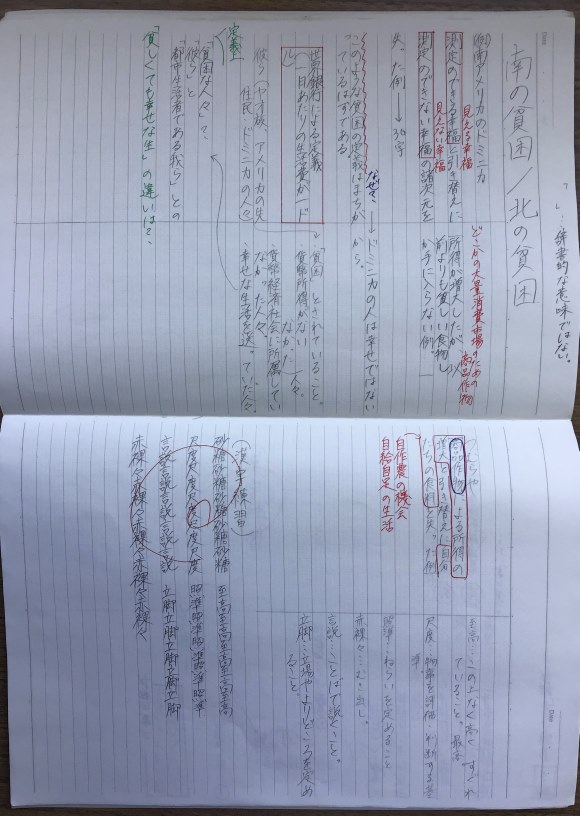 「　」…辞書的な意味ではない。
南の貧困／北の貧困
例 南アメリカのドミニカ
見える幸福
測定のできる幸福と引き替えに
見えない幸福
測定のできない幸福の諸次元を
失った例→36字
このような貧困の定義はまちが
っているはずである。
なぜ？
世界銀行による定義
「一日あたりの生活費が一ド
ル」
彼ら（ヤオ族、アメリカの先
住民・ドミニカの人々）
定義
「貧困な人々」？、
「彼ら」と
「都市生活者である我ら」との
「貧しくても幸せな生」の違いは？、
どこかの大量消費市場のための
商品作物
所得が増大したが、以
前よりも貧しい食物し
か手に入らない例。
→ドミニカの人は幸せではない
から。
「貧困」とされていること。
貨幣所得がない
なかった人々。
貨幣経済社会に所属してい
なかった人々。
幸せな生活を送っていた人々。
商品作物による所得の
増大と引き替えに自分
たちの食料を失った例
自作農の機会
自給自足の生活
（漢字練習）
砂糖砂糖砂糖砂糖砂糖
尺度尺度尺度尺度尺度
言説言説言説言説言説
赤裸々赤裸々赤裸々赤裸々赤裸々
至高至高至高至高至高
照準照準照準照準照準
立脚立脚立脚立脚立脚
至高…この上なく高く すぐれ
ていること。最高
尺度…物事を評価・判断する基
準。
照準…ねらいを定めること
赤裸々…むき出し。
言説…ことばで説くこと。
立脚…立場やよりどころを定め
ること。